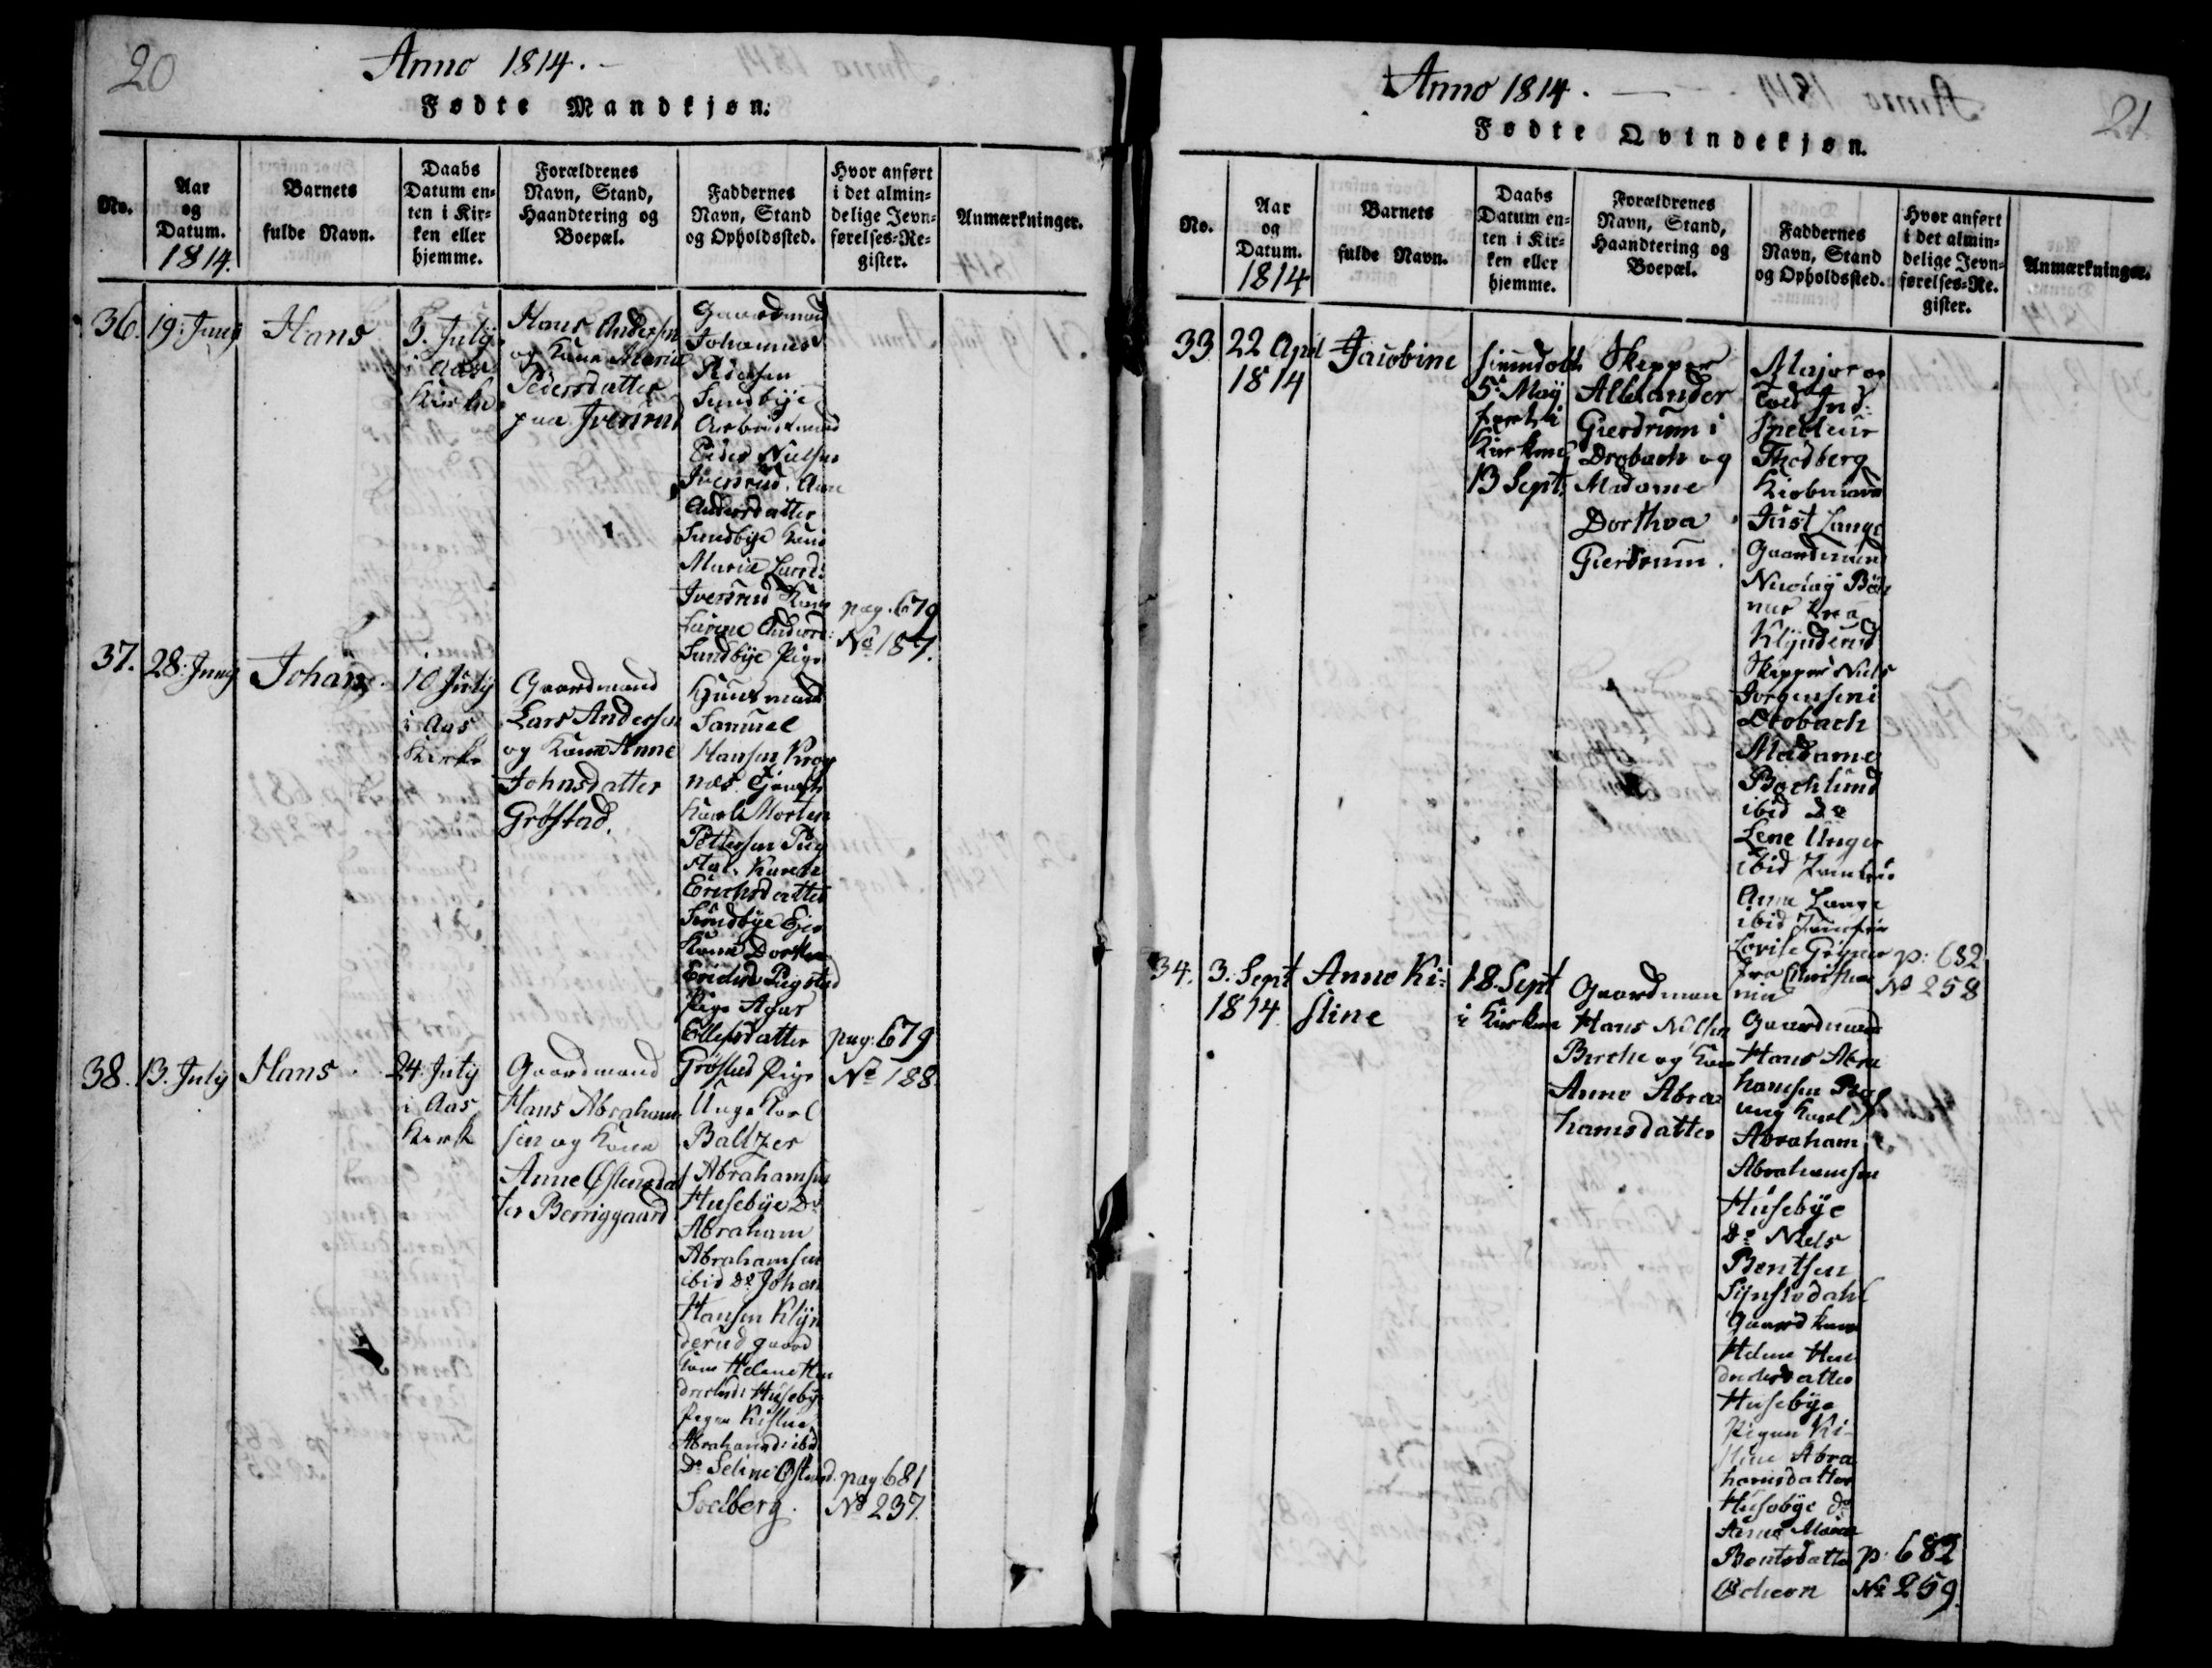 20
Anno 1814.
Fødte Mandkjøn.
No.
Aar
og
Datum.
1814.
Barnets
fulde Navn.
Daabs
Datum en-
ten i Kir-
ken eller
hjemme.
Forældrenes
Navn, Stand,
Haandtering og
Boepæl.
Faddernes
Navn, Stand
og Opholdssted.
Hvor anført
i det almin-
delige Jevn-
førelses-Re-
gister.
Anmærkninger.
36.
19: Juny
Hans
3. July
i Aas
Kirke
Hans Andersen
og Kone Maria
Pedersdatter
paa Iversrud
Gaardmand
Johannes
Pedersen
Sundbye
Arbeidsmand
Peder Nielsen
Iversrud. Anne
Andersdatter
Sundbye Kone
Maria Larsd:
Iversrud Kone
Anders:
Sundbye Pige
pag. 679
No 187.
37.
28: Juny
Johan
10 July
i Aas
Kirke
Gaardmand
Lars Andersen
og Kone Anne
Johnsdatter
Grøstad.
Huusmand
Samuel
Hansen Krog
næs
Karl Morten
Pettersen Pug
stad. Karen
Erichsdatter
Sundbye
Kone Dorthe
Erichsd Pugstad
Pige
Ellefsdatter
Grøstad Pige
pag: 679
No 188
38.
13. July
Hans
24. July
i Aas
Kirk
Gaardmand
Hans Abraham
sen og Kone
Anne Østensdat
ter Berriggaard
Unge Karl
Baltzer
Abrahamsen
Husebye Do
Abraham
Abrahamsen
ibid do Johan
Hansen Klyn
derud gaard
kone Helene Hen
drichsd: Husebye
Pigen Kistine
Abrahamsd: ibid
Do Selin Østensd.
Soelberg.
pag: 681
No 237.
21
Anno 1814.
Fødte Qvindekjøn.
No.
Aar
og
Datum.
1814
Barnets
fulde Navn.
Daabs
Datum en-
ten i Kir-
ken eller
hjemme.
Forældrenes
Navn, Stand,
Haandtering og
Boepæl.
Faddernes
Navn, Stand
og Opholdssted.
Hvor anført
i det almin-
delige Jevn-
førelses-Re-
gister.
Anmærkninger.
33
22 April
1814
Jacobine
hiemdøbt
5: May
i
Kirken
13 Sept.
Skipper
Allexander
Gierdrum i
Drobach og
Madame
Dorthea
Gierdrum.
Major og
Told Ind:
specteur
Thodberg
Kiøbmand
Just Lange
Gaardmand
Nicolay
fra
Klynderud
Skipper Niels
Jørgensen i
Drobach
Madame
Bochlund
ibid Do
Lene Unger
ibid Jomfrue
Anne Lange
ibid Jomfrue
Lovise
fra Christia
nia
p: 682
No 258
34.
3: Sept
1814
Anne Ki-
stine
18. Sept
i Kirken
Gaardman
Hans Nilsen
Birche og Kone
Anne Abra
hamsdatter
Gaardmand
Hans Abra
hamsen
ung Karl
Abraham
Abrahamsen
Husebye
Do Niels
Bentsen
Synstedahl
Gaard kone
Helene Hen
drichsdatter
Husebye
Pigen Ki-
stine Abra
hamsdatter
Husebye do
Anne Marie
Bentsdatter
p: 682
No 259.